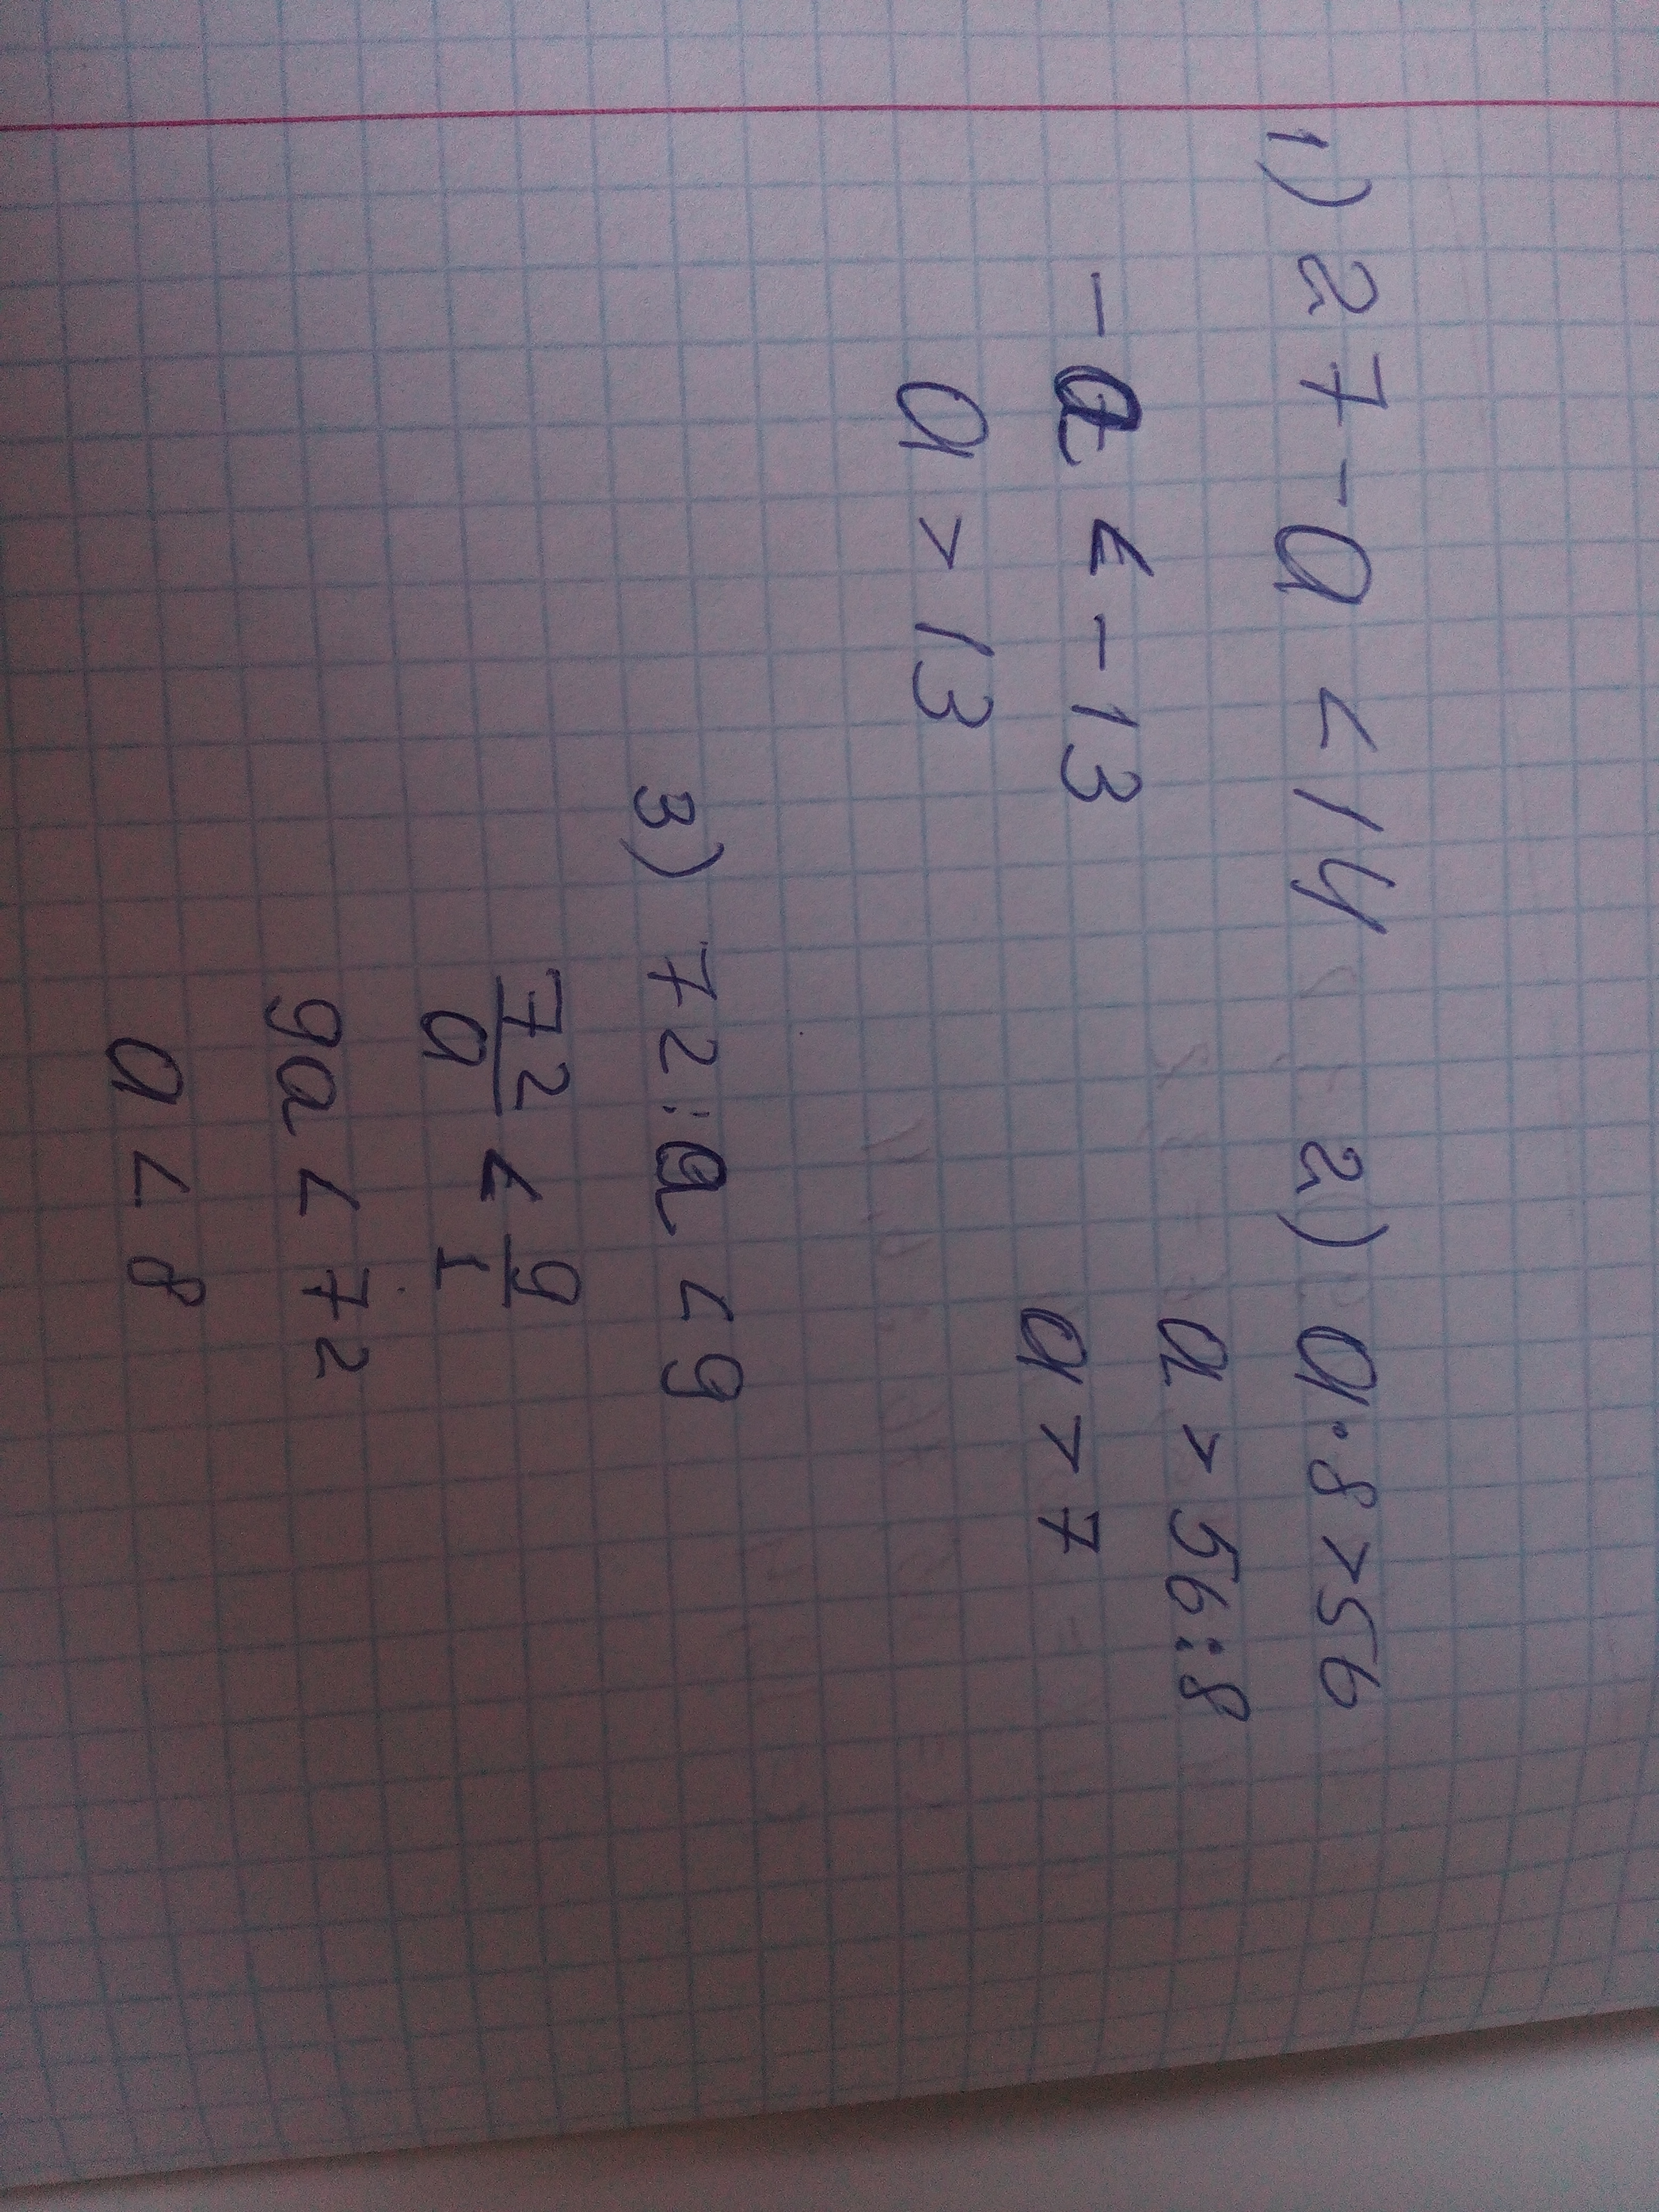 1) 27 - a < 14
- a < - 13
a > 13
2) a · 8 > 56
a > 56 : 8
a > 7
3) 72 : a < 9
72/a < 9/1
9a < 72
a < 8